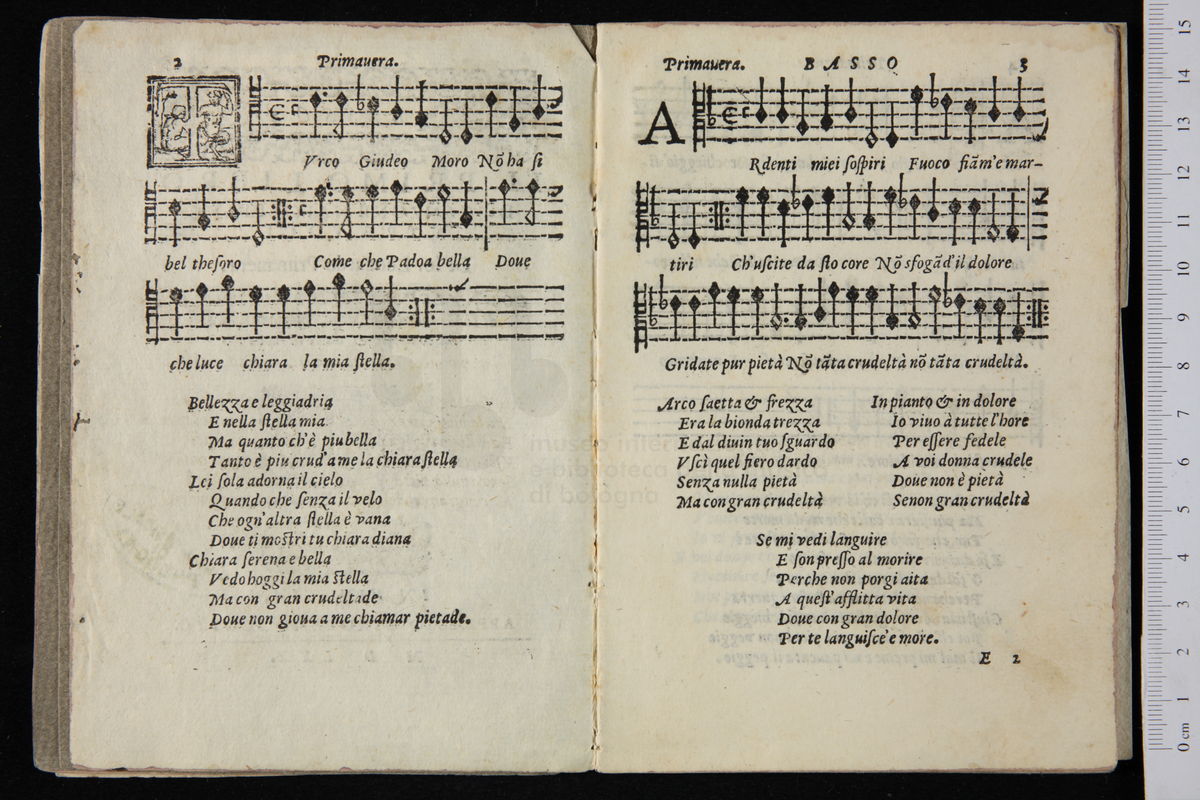 2 Primauera.
T
Vrco Giudeo Moro Nõ ha ſi
bel theſoro Come che Padoa bella Doue
che luce chiara la mia ſtella.
Bellezza e leggiadria
E nella ſtella mia
Ma quanto ch'è piu bella
Tanto è piu crud'a me la chiara ſtella
Lei ſola adorna il cielo
Quando che ſenza il velo
Che ogn'altra ſtella è vana
Doue ti moſtri tu chiara diana
Chiara ſerena e bella
Vedo hoggi la mia ſtella
Ma con gran crudeltade
Doue non gioua a me chiamar pietade.
Primauera. BASSO 3
A
Rdenti miei ſoſpiri Fuoco fiãm'e mar-
tiri Ch'uſcite da ſto core Nõ sfogãd'il dolore
Gridate pur pietà Nõ tãta crudeltà nõ tãta crudeltà.
Arco ſaetta & frezza
Era la bionda trezza
E dal diuin tuo ſguardo
Vſcì quel fiero dardo
Senza nulla pietà
Ma con gran crudeltà
In pianto & in dolore
Io viuo à tutte l'hore
Per eſſere fedele
A voi donna crudele
Doue non è pietà
Se non gran crudeltà
Se mi vedi languire
E ſon preſſo al morire
Perche non porgi aita
A queſt'afflitta vita
Doue con gran dolore
Per te languiſce e more.
E 2
museo inter
e biblioteca
di bologna
0 cm 1 2 3 4 5 6 7 8 9 10 11 12 13 14 15